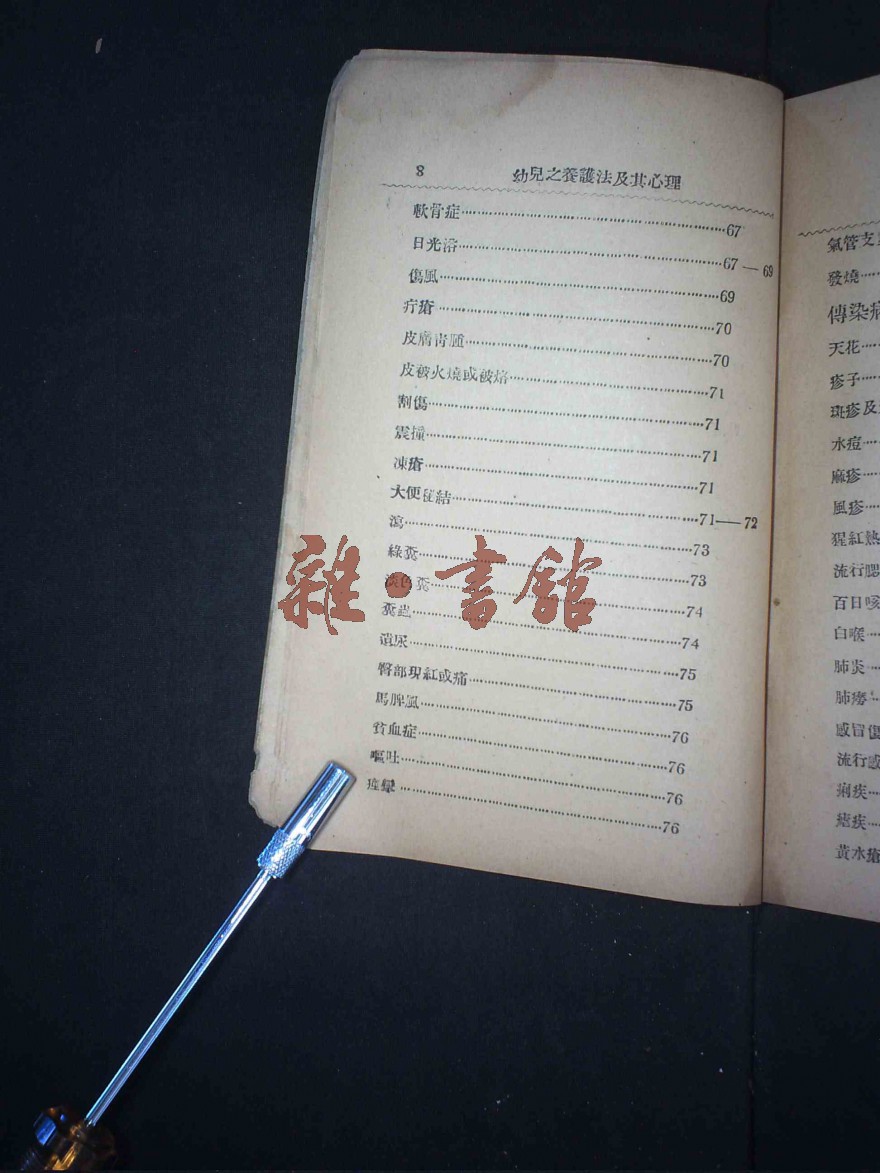 8 幼兒之養護法及其心理
軟骨症……67
日光浴……67—69
傷風……69
疔瘡……70
皮膚青腫……70
皮被火燒或被焙……71
割傷……71
震撞……71
凍瘡……71
大便秘結……71—72
瀉……73
綠糞……73
淡色糞……74
糞蟲……74
遺尿……75
臀部現紅或痛……75
馬脾風……76
貧血症……76
嘔吐……76
痙攣……76
雜·書館
氣管支
發燒……
傳染病
天花……
疹子……
斑疹及
水痘……
麻疹……
風疹……
猩紅熱
流行腮
百日咳
白喉……
肺炎……
肺癆……
感冒傷
流行感
痢疾……
瘧疾……
黃水瘡